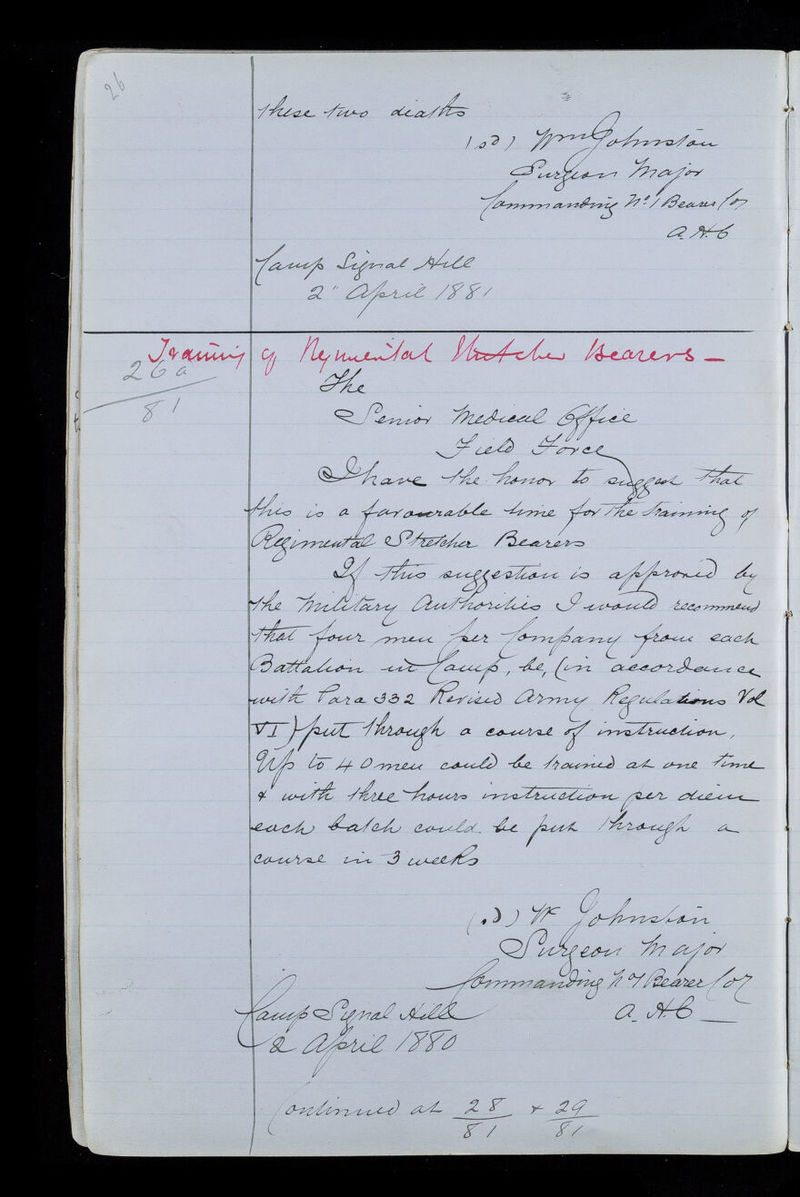 26
these two deaths
(sd) Wm Johnston
Surgeon Major
Commanding No 1 Bearer Coy
A.H.C
Camp Signal Hill
2" April 1881
Training of Regimental Stretcher Bearers —
26a
81
The
Senior Medical Office
Field Force
I have the honor to suggest that
this is a favourable time for the training of
Regimental Stretcher Bearers
If this suggestion is approved by
the Military Authorities I would recommend
that four men per Company from each
Battalion in Camp, be, (in accordance
with Para 332 Revised Army Regulations Vol
VI) put through a course of instruction,
Up to 40 men could be trained at one time
& with three hours instruction per diem
each batch could be put through a
course in 3 weeks
(sd) W Johnston
Surgeon Major
Commanding No 1 Bearer Coy
A.H.C —
Camp Signal Hill
2 April 1880
Continued at 28/81 + 29/81